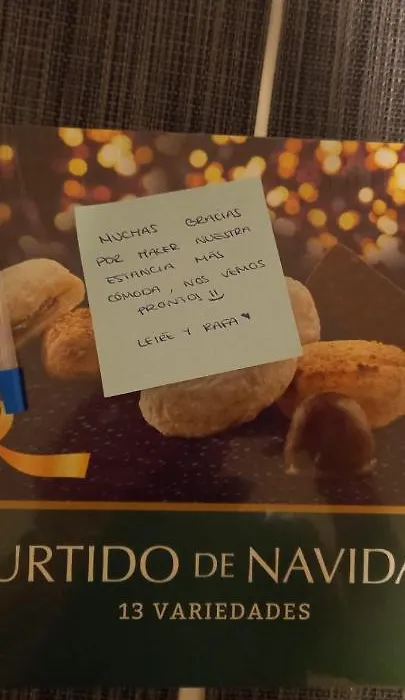 MUCHAS GRACIAS
POR HACER NUESTRA
ESTANCIA MÁS
CÓMODA, NOS VEMOS
PRONTO!
LEIRE Y RAFA
URTIDO DE NAVIDA
13 VARIEDADES